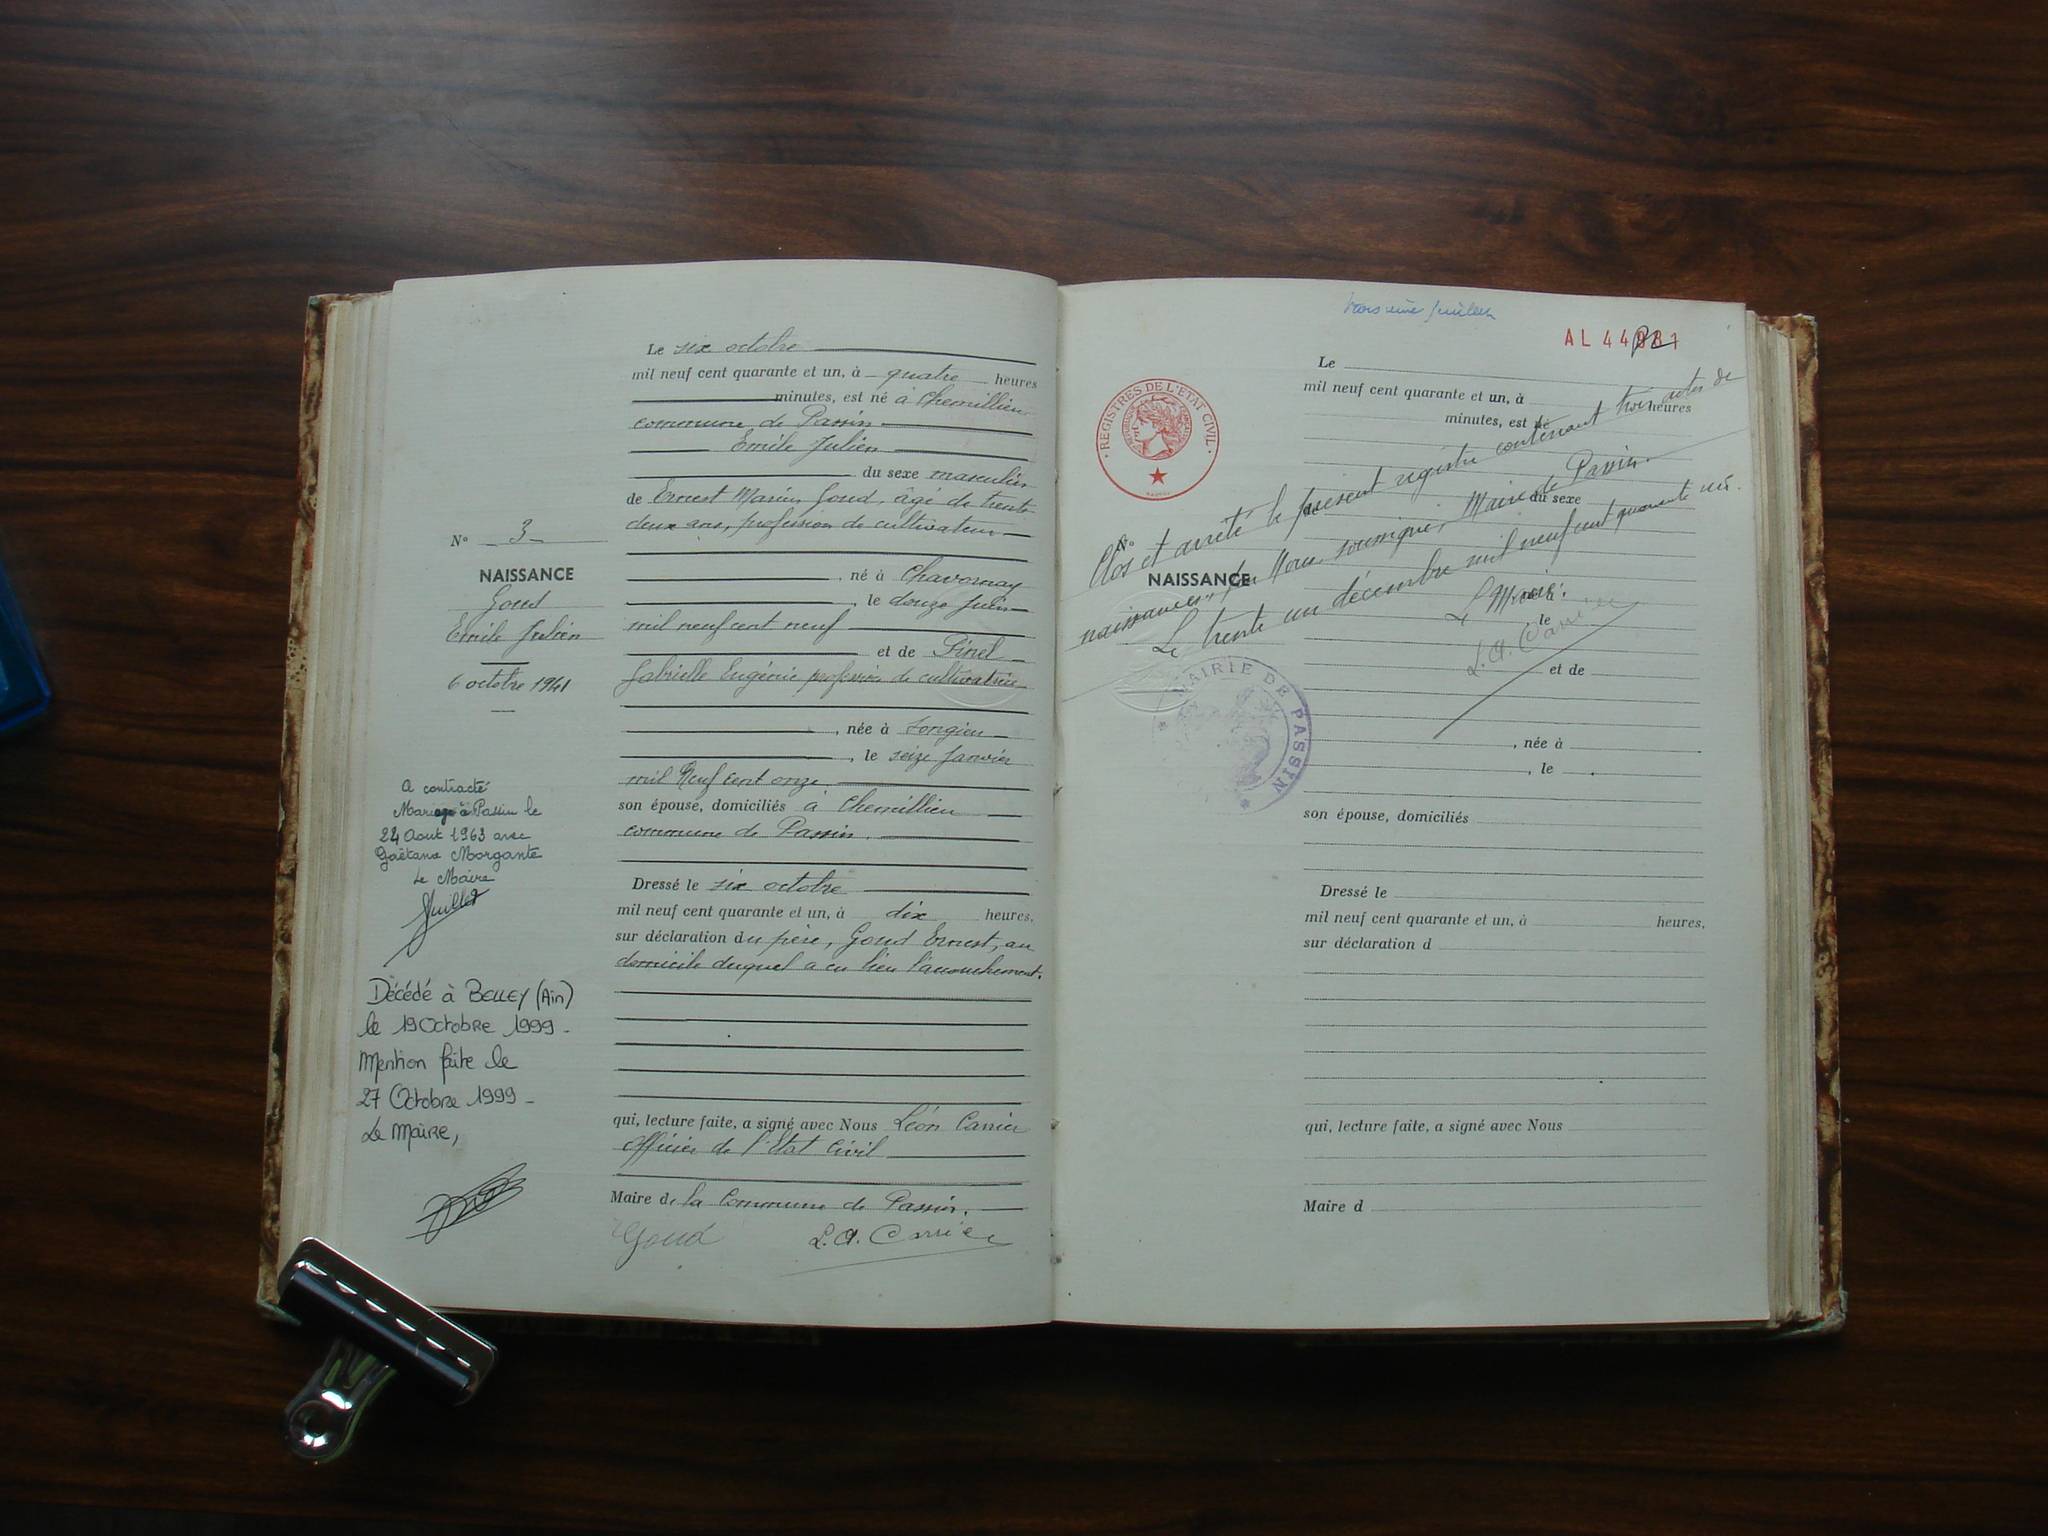 Le six octobre
mil neuf cent quarante et un, à quatre heures
minutes, est né à Chemillieu
commune de Passin
Emile Julien
du sexe masculin
de Ernest Marius Goud, âgé de trente
deux ans, profession de cultivateur
, né à Chavornay
, le douze juin
mil neuf cent neuf
et de Pinel
Gabrielle Eugénie profession de cultivatrice
, née à Songieu
, le seize janvier
mil Neuf cent onze
son épouse, domiciliés à Chemillieu
commune de Passin.
Dressé le six octobre
mil neuf cent quarante et un, à dix heures,
sur déclaration du père, Goud Ernest, au
domicile duquel a eu lieu l'accouchement.
qui, lecture faite, a signé avec Nous Léon Carrier
Officier de l'Etat Civil
Maire de la Commune de Passin.
Goud L.A. Carrier
N° 3
NAISSANCE
Goud
Emile Julien
6 octobre 1941
A contracté
Mariage à Passin le
24 Aout 1963 avec
Gaëtana Morgante
Le Maire
Juillet
Décédé à BELLEY (Ain)
le 19 Octobre 1999 -
Mention faite le
27 Octobre 1999 -
Le Maire,
feuillet
AL 44981
REGISTRES DE L'ETAT CIVIL
Le
mil neuf cent quarante et un, à heures
minutes, est né
du sexe
N°
NAISSANCE
Clos et arrêté le présent registre contenant trois actes de
naissances, par Nous soussigné, Maire de Passin.
Le trente un décembre mil neuf cent quarante un.
Le Maire.
L.A. Carrier
MAIRIE DE PASSIN
le
et de
, née à
, le
son épouse, domiciliés
Dressé le
mil neuf cent quarante et un, à heures,
sur déclaration d
qui, lecture faite, a signé avec Nous
Maire d